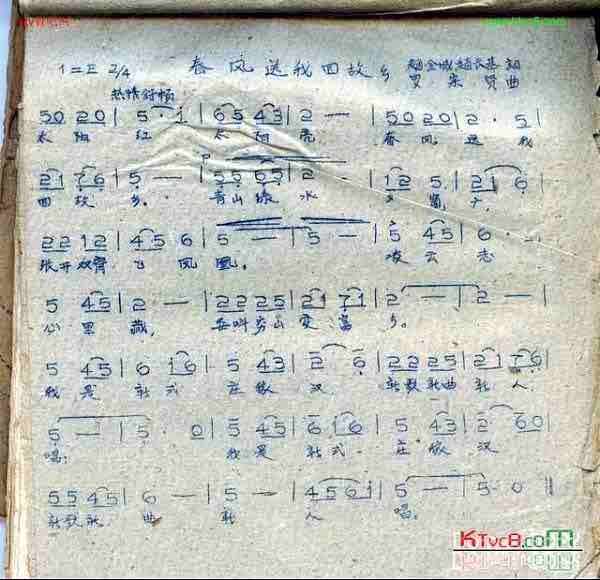 1=E 2/4 春风送我回故乡 曲
热情舒畅
50 20 | 5 · i | 65 43 | 2 — | 50 20 | 2 · 5 |
太阳 红 太阳 亮 春风 送 我
21 76 | 5 — | 55 65 | 2 — | 12 5 | 21 6 |
回故 乡。 青山绿 水
22 12 | 45 6 | 5 — | 5 — | 5 45 | 6 · |
张开双臂 飞 凤 凰。 凌云志
5 45 | 2 — | 22 25 | 21 71 | 2 — | 2 — |
心里 藏, 穷山变富 乡。
5 45 | 6 i6 | 5 43 | 2 6 | 22 25 | 21 76 |
我是 新式 庄稼 汉 新歌新曲新 人
5 — | 5 · 0 | 5 45 | 6 i6 | 5 43 | 2 60 |
唱: 我是 新式 庄稼 汉
55 45 | 6 — | 5 — | 45 6i | 5 — | 5 · 0 ||
新歌新 曲 新 人 唱。
KTvc8.com